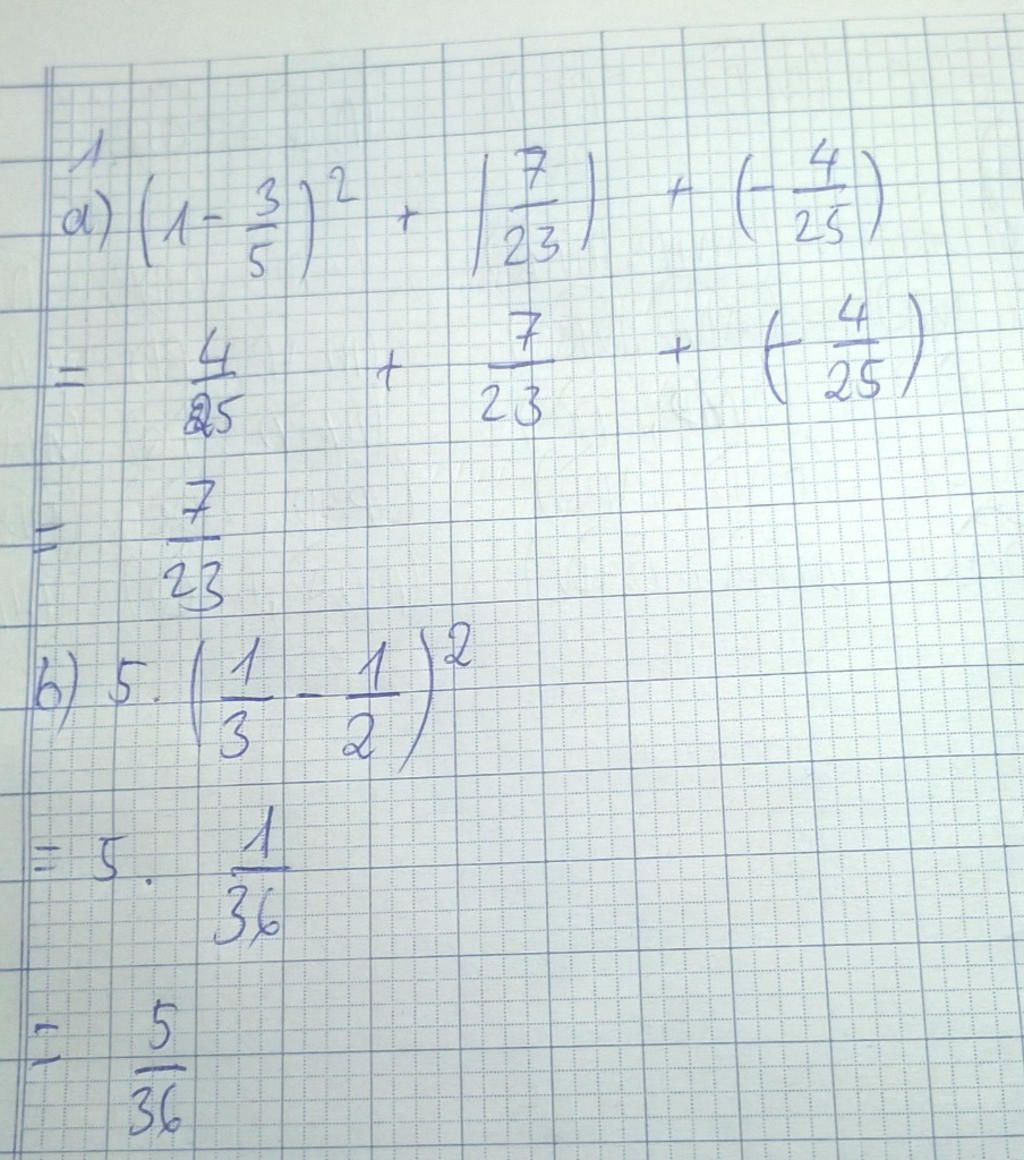 1
a) (1 - 3/5)² + |7/23) + (- 4/25)
= 4/25 + 7/23 + (- 4/25)
= 7/23
b) 5. (1/3 - 1/2)²
= 5. 1/36
= 5/36